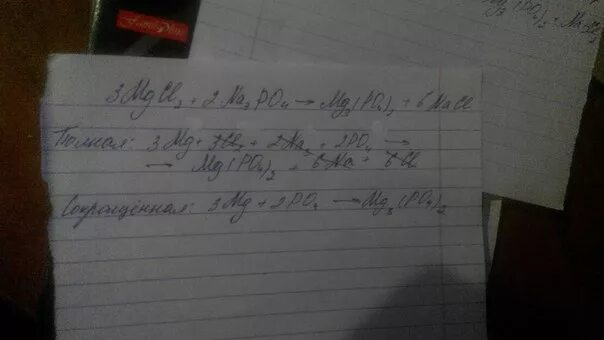 3MgCl₂ + 2Na₃PO₄ → Mg₃(PO₄)₂ + 6NaCl
Полная: 3Mg + 3Cl₂ + 2Na₃ + 2PO₄ →
→ Mg(PO₄)₂ + 6Na + 6Cl
Сокращённая: 3Mg + 2PO₄ → Mg₃(PO₄)₂